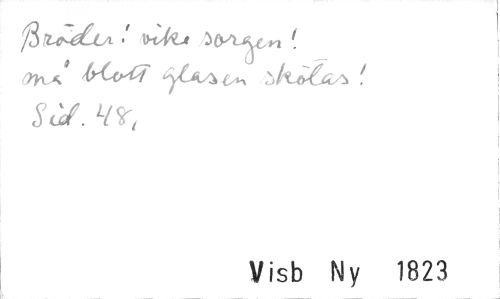 Bröder! vike sorgen!
må blott glasen skötas!
Sid. 48,
Visb Ny 1823